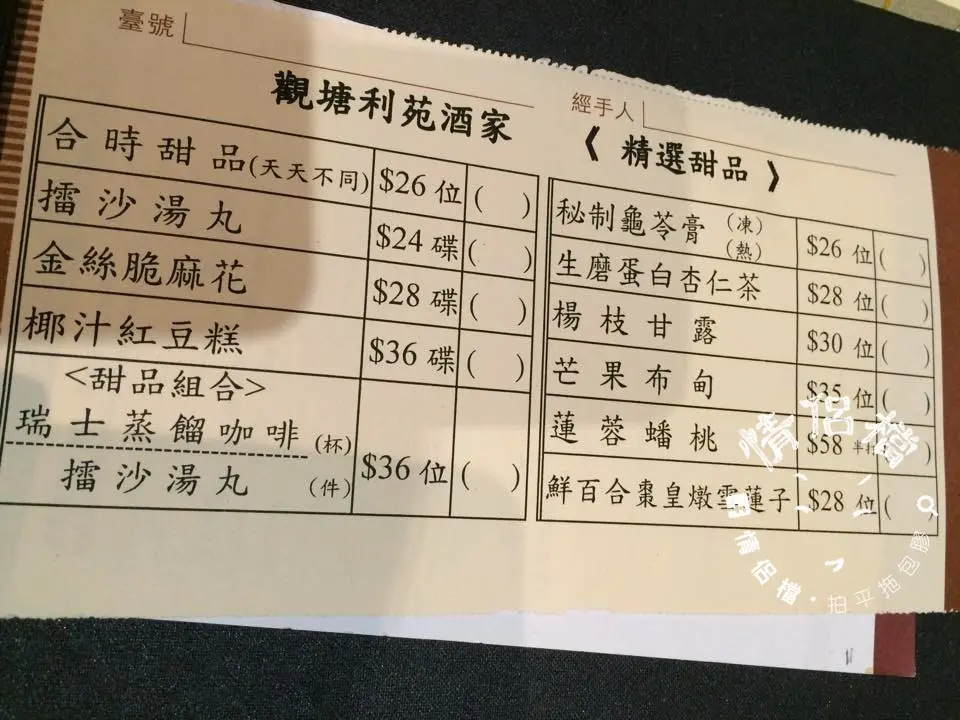 臺號
經手人
觀塘利苑酒家
《 精選甜品 》
合時甜品(天天不同) $26 位 ( )
擂沙湯丸 $24 碟 ( )
金絲脆麻花 $28 碟 ( )
椰汁紅豆糕 $36 碟 ( )
<甜品組合>
瑞士蒸餾咖啡 (杯)
擂沙湯丸 (件)
$36 位 ( )
秘制龜苓膏 (凍) (熱) $26 位 ( )
生磨蛋白杏仁茶 $28 位 ( )
楊枝甘露 $30 位 ( )
芒果布甸 $35 位 ( )
蓮蓉蟠桃 $58 半打 )
鮮百合棗皇燉雪蓮子 $28 位 ( )
情侶檔
情侶檔・拍平拖包膠